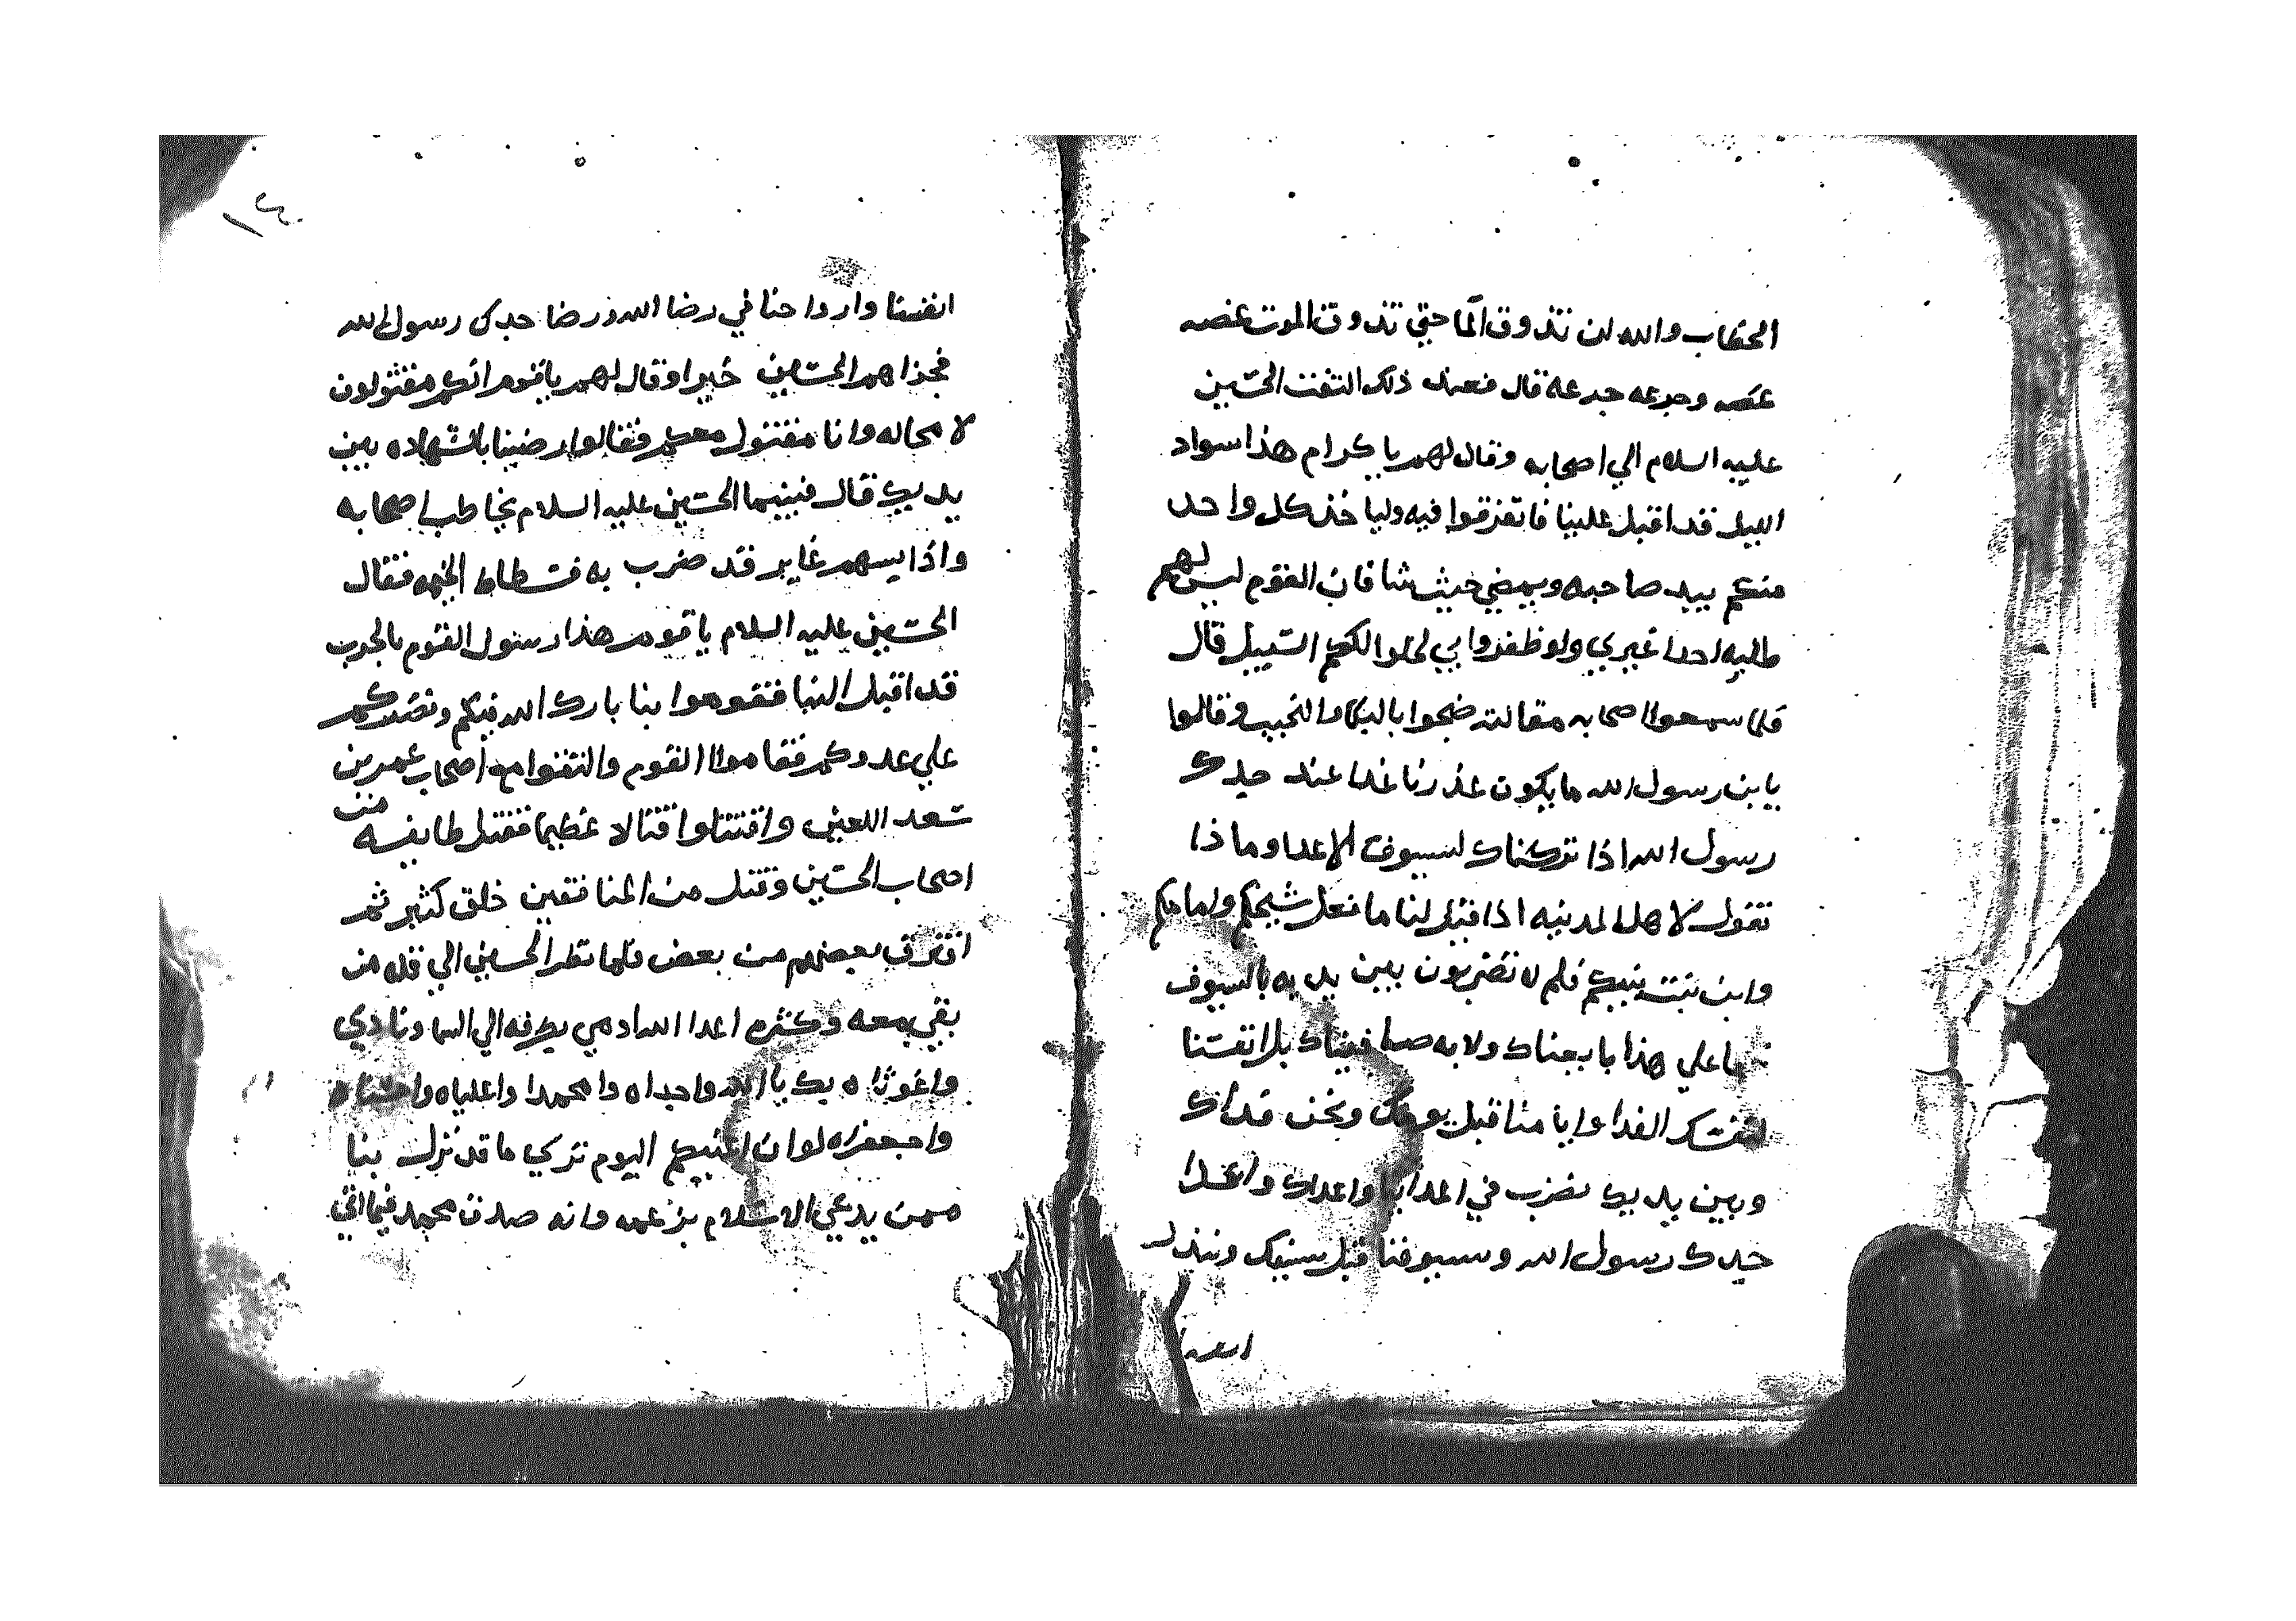 الخطاب والله لن تذوق الما حتي تذوق الموت غصه
غصه وجرعه جرعة قال فعند ذلك التفت الحسين
عليه السلام الي اصحابه وقال لهم يا كرام هذا سواد
الليل قد اقبل علينا فاتفرقوا فيه وليا خذ كل واحد
منكم بيد صاحبه ويمضي حيث شا فان القوم ليس لهم
طلبه احدا غيري ولو ظفروا بي لخلوا لكم السبيل قال
فلما سمعوا اصحابه مقالته ضجوا بالبكا والنحيب وقالوا
يا بن رسول الله ما يكون عذرنا غدا عند جدك
رسول الله اذا تركناك لسيوف الاعدا وماذا
نقول لاهل المدينه اذا قيل لنا ما فعل شيخكم وامامكم
وابن بنت نبيكم فلم لا تضربون بين يديه بالسيوف
ما علي هذا بايعناك ولا به صافيناك بل انفسنا
لنفسك الفدا وايامنا قبل يومك ونحن فداك
وبين يديك نضرب في اعدائنا واعداك واعدا
جدك رسول الله وسيوفنا قبل سيفك ونبذل
انفسنا
١٤
انفسنا وارواحنا في رضا الله ورضا جدك رسول الله
فجزاهم الحسين خيرا وقال لهم يا قوم انكم مقتولون
لا محاله وانا مقتول معكم فقالوا رضينا بالشهاده بين
يديك قال فبينما الحسين عليه السلام يخاطب اصحابه
واذا بسهم غاير قد ضرب به فسطاط الخيمه فقال
الحسين عليه السلام يا قوم هذا رسول القوم بالحرب
قد اقبل الينا فقوموا بنا بارك الله فيكم ونصركم
علي عدوكم فقاموا القوم والتقوا مع اصحاب عمر بن
سعد اللعين واقتتلوا قتالا عظيما فقتل طايفه من
اصحاب الحسين وقتل من المنافقين خلق كثير ثم
افترق بعضهم من بعض فلما نظر الحسين الي قله من
بقي معه وكثره اعدا الله ادمي بطرفه الي السما ونادي
واغوثاه بك يا الله واجداه وا محمدا واعلياه واحسناه
واجعفراه لوان نبيكم اليوم تري ما قد نزل بنا
ممن يدعي الاسلام بزعمه وانه صدق محمد فيما اتي